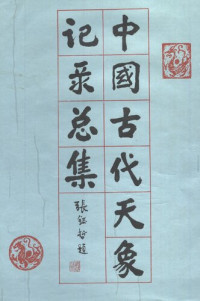 中國古代天象
记录总集
張鈺哲题